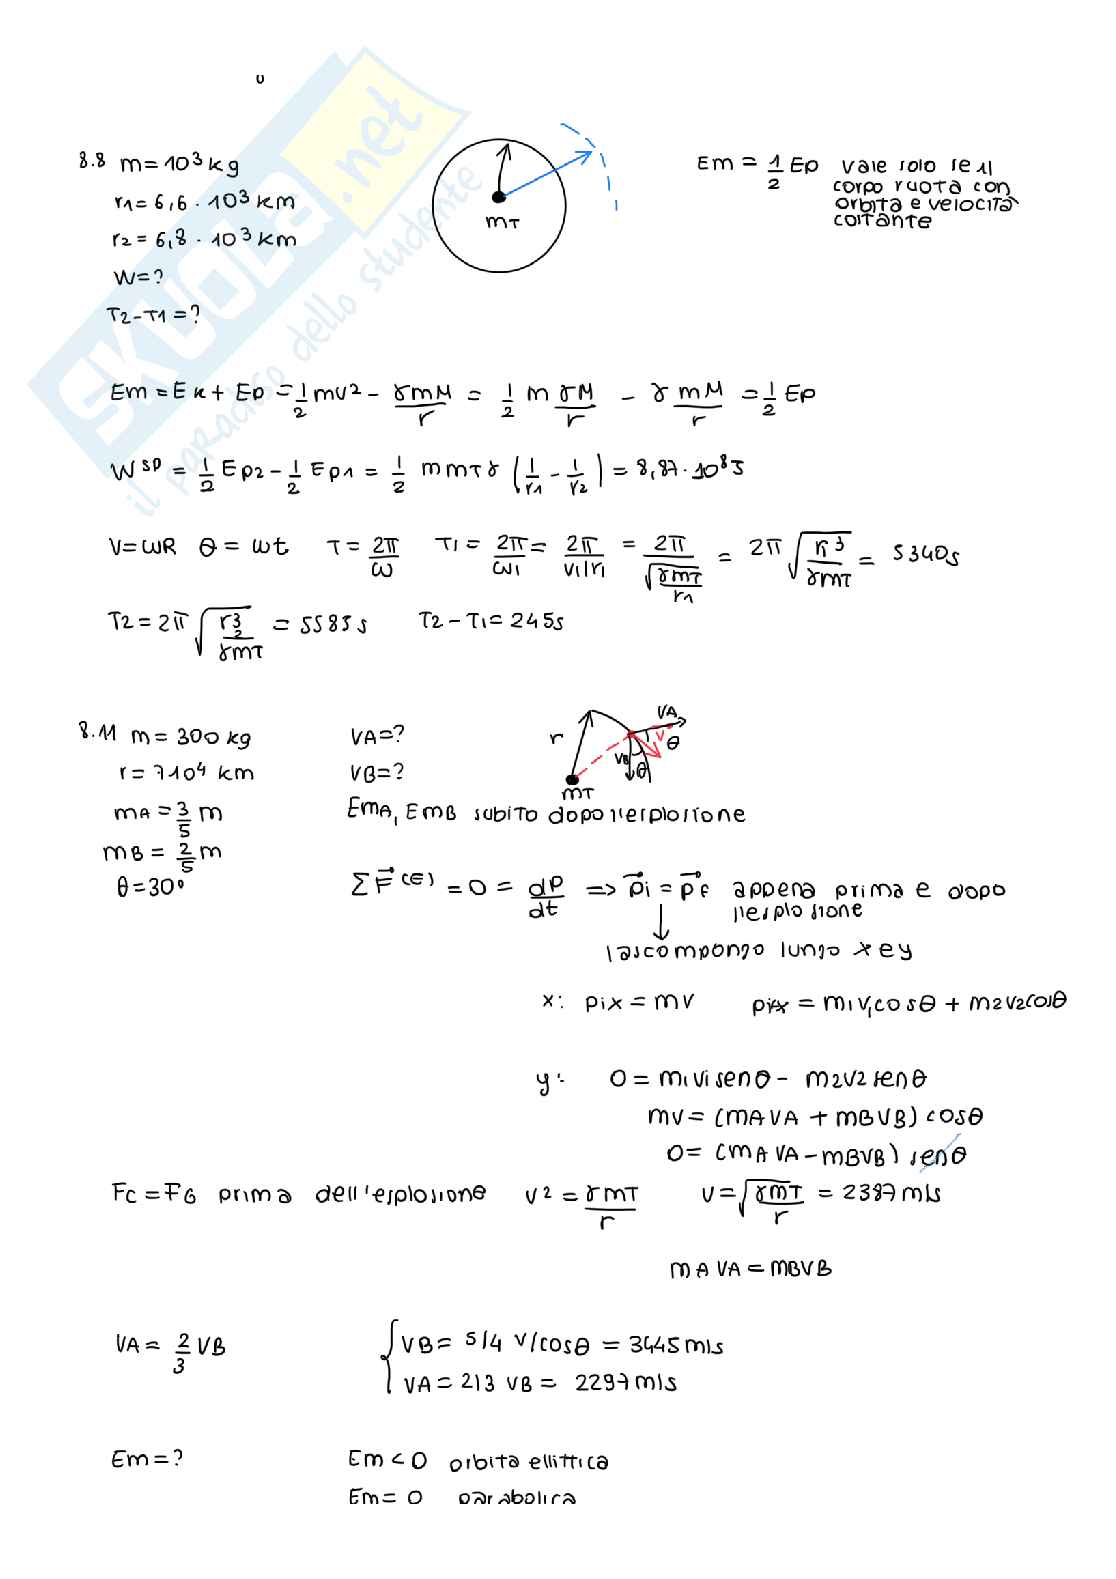 SKUOLA.net
il paradiso dello studente
8.8 m = 10³ kg
r1 = 6,6 · 10³ km
r2 = 6,8 · 10³ km
W = ?
T2 - T1 = ?
mT
Em = 1/2 Ep vale solo se il
corpo ruota con
orbita e velocità
costante
Em = Ek + Ep = 1/2 mv² - γmM/r = 1/2 m γM/r - γ mM/r = 1/2 Ep
W^SP = 1/2 Ep2 - 1/2 Ep1 = 1/2 m mT γ (1/r1 - 1/r2) = 8,87 · 10⁸ J
V = ωR θ = ωt T = 2π/ω T1 = 2π/ω1 = 2π/(v1/r1) = 2π/√(γmT/r1) = 2π √(r1³/γmT) = 5340s
T2 = 2π √(r2³/γmT) = 5585 s T2 - T1 = 245s
8.11 m = 300 kg VA = ?
r = 7 10⁴ km VB = ?
r VA V θ VB θ mT
mA = 3/5 m EmA, EmB subito dopo l'esplosione
mB = 2/5 m
θ = 30° Σ F⃗^(E) = 0 = dP/dt => p⃗i = p⃗f appena prima e dopo
l'esplosione
la scompongo lungo x e y
x: pix = mv pix = m1v1cosθ + m2v2cosθ
y: 0 = m1v1senθ - m2v2senθ
mv = (mAVA + mBVB) cosθ
0 = (mAVA - mBVB) senθ
Fc = FG prima dell'esplosione v² = γmT/r v = √(γmT/r) = 2387 m/s
mAVA = mBVB
VA = 2/3 VB { VB = 5/4 v/cosθ = 3445 m/s
VA = 2/3 VB = 2297 m/s
Em = ? Em < 0 orbita ellittica
Em = 0 parabolica